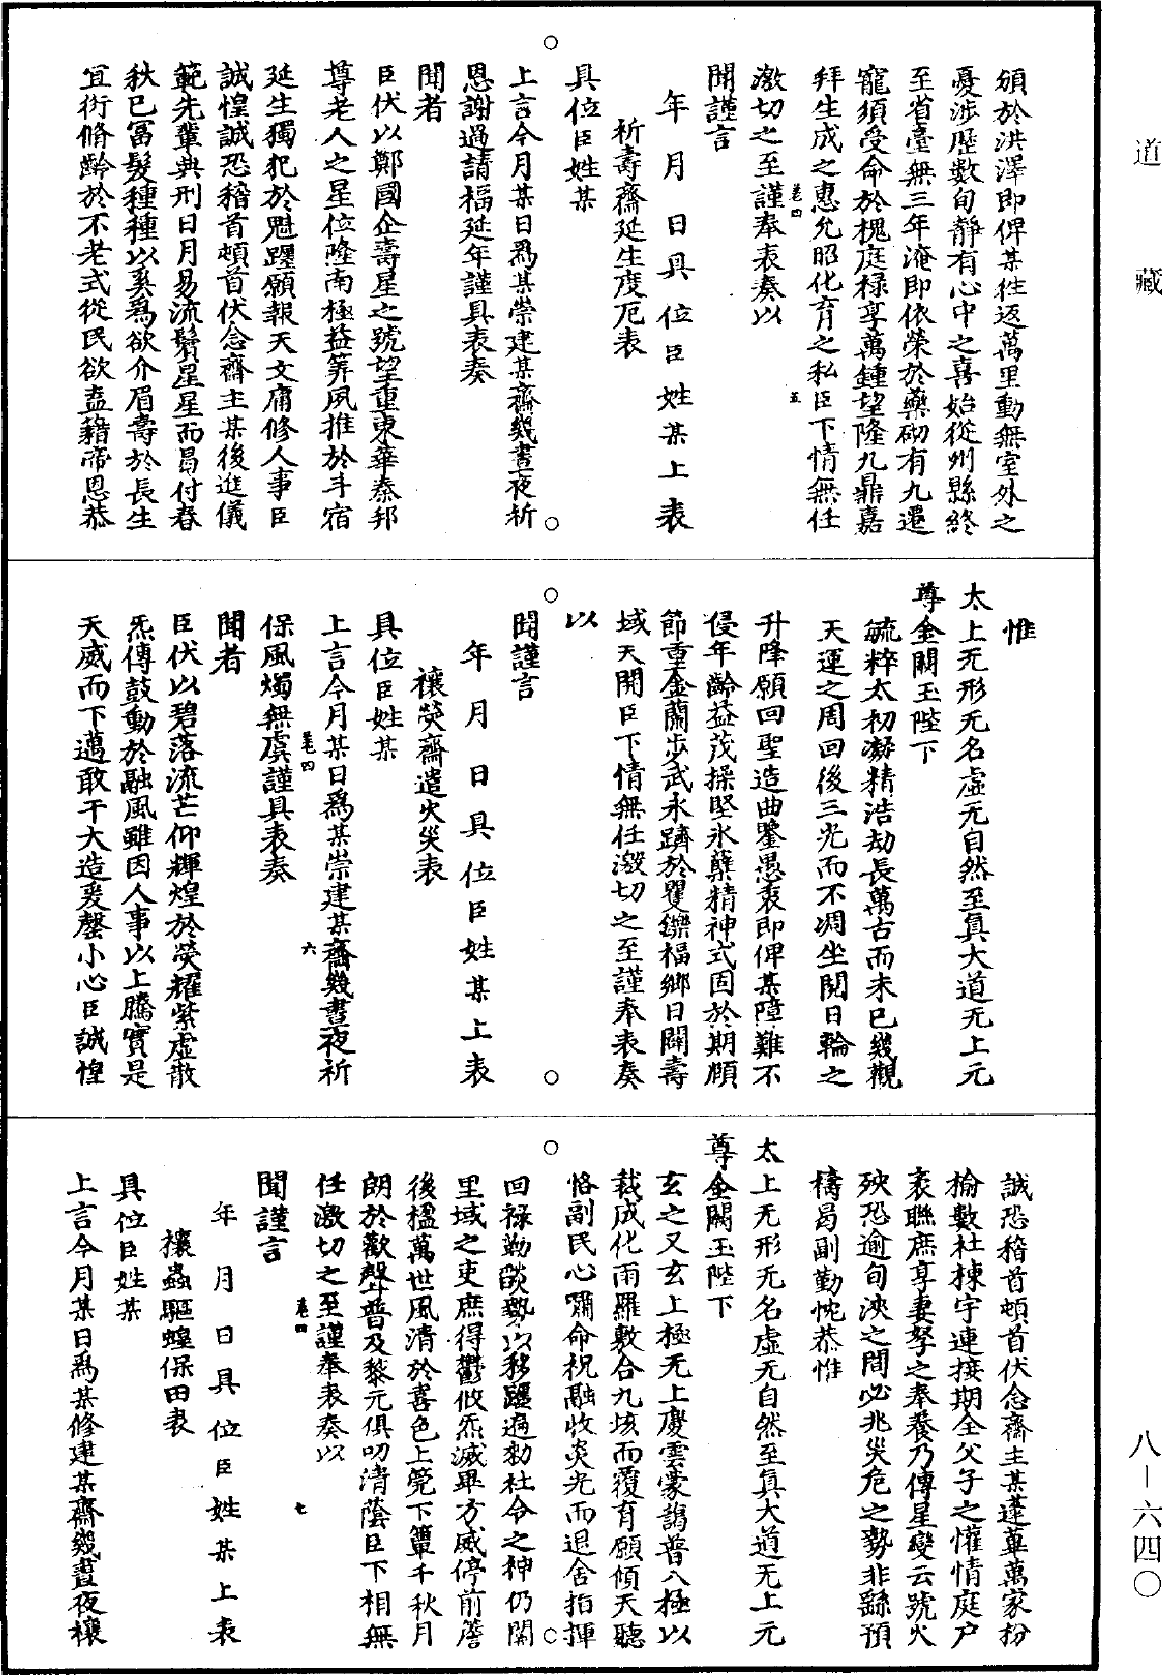 道藏
八—六四〇
頒於洪澤即俾某徃返萬里動無室外之
憂渉歷數旬靜有心中之喜始從州縣終
至省臺無三年淹即依榮於藥砌有九遷
寵須受命於槐庭禄享萬鍾望隆九鼎嘉
拜生成之惠允昭化育之私臣下情無任
激切之至謹奉表奏以
卷四
五
聞謹言
年月日具位臣姓某上表
祈壽齋延生度厄表
具位臣姓某
上言今月某日爲某崇建某齋幾晝夜祈
恩謝過請福延年謹具表奏
聞者
臣伏以鄭國企壽星之號望重東華秦邦
尊老人之星位隆南極益筭夙推於斗宿
延生獨犯於魁躔願報天文庸修人事臣
誠惶誠恐稽首頓首伏念齋主某後進儀
範先輩典刑日月易流鬢星星而曷付春
秋已冨髮種種以奚爲欲介眉壽於長生
冝衒脩齡於不老式從民欲盍籍帝恩恭
惟
太上无形无名虛无自然至真大道无上元
尊金闕玉陛下
毓粹太初凝精浩劫長萬古而未已幾觀
天運之周回後三光而不凋坐閱日輪之
升降願回聖造曲鑒愚衷即俾某障難不
侵年齡益茂操堅氷蘗精神式固於期頤
節重金蘭歩武永躋於矍鑠福鄉日闢壽
域天開臣下情無任激切之至謹奉表奏
以
聞謹言
年月日具位臣姓某上表
禳熒齋遣火災表
具位臣姓某
上言今月某日爲某崇建某齋幾晝夜祈
卷四
六
保風燭無虞謹具表奏
聞者
臣伏以碧落流芒仰輝煌於熒耀紫虛散
炁傳鼓動於融風雖因人事以上騰實是
天威而下邁敢干大造爰罄小心臣誠惶
誠恐稽首頓首伏念齋主某蓬蓽萬家枌
榆數社棟宇連接期全父子之懽情庭户
袤聯庶享妻孥之奉養乃傳星變云號火
殃恐逾旬浹之間必兆災危之勢非繇預
禱曷副勤忱恭惟
太上无形无名虛无自然至真大道无上元
尊金闕玉陛下
玄之又玄上極无上慶雲蒙靄普八極以
裁成化雨羅敷合九垓而覆育願傾天聽
恪副民心嘱命祝融收炎光而退舍指揮
回禄勒燄勢以移躔遍勑社令之神仍關
里域之吏庶得鬱攸炁滅畢方威停前簷
後楹萬世風清於喜色上筦下簟千秋月
朗於歡聲普及黎元俱叨清蔭臣下相無
任激切之至謹奉表奏以
卷四
七
聞謹言
年月日具位臣姓某上表
禳蟲驅蝗保田表
具位臣姓某
上言今月某日爲某修建某齋幾晝夜禳